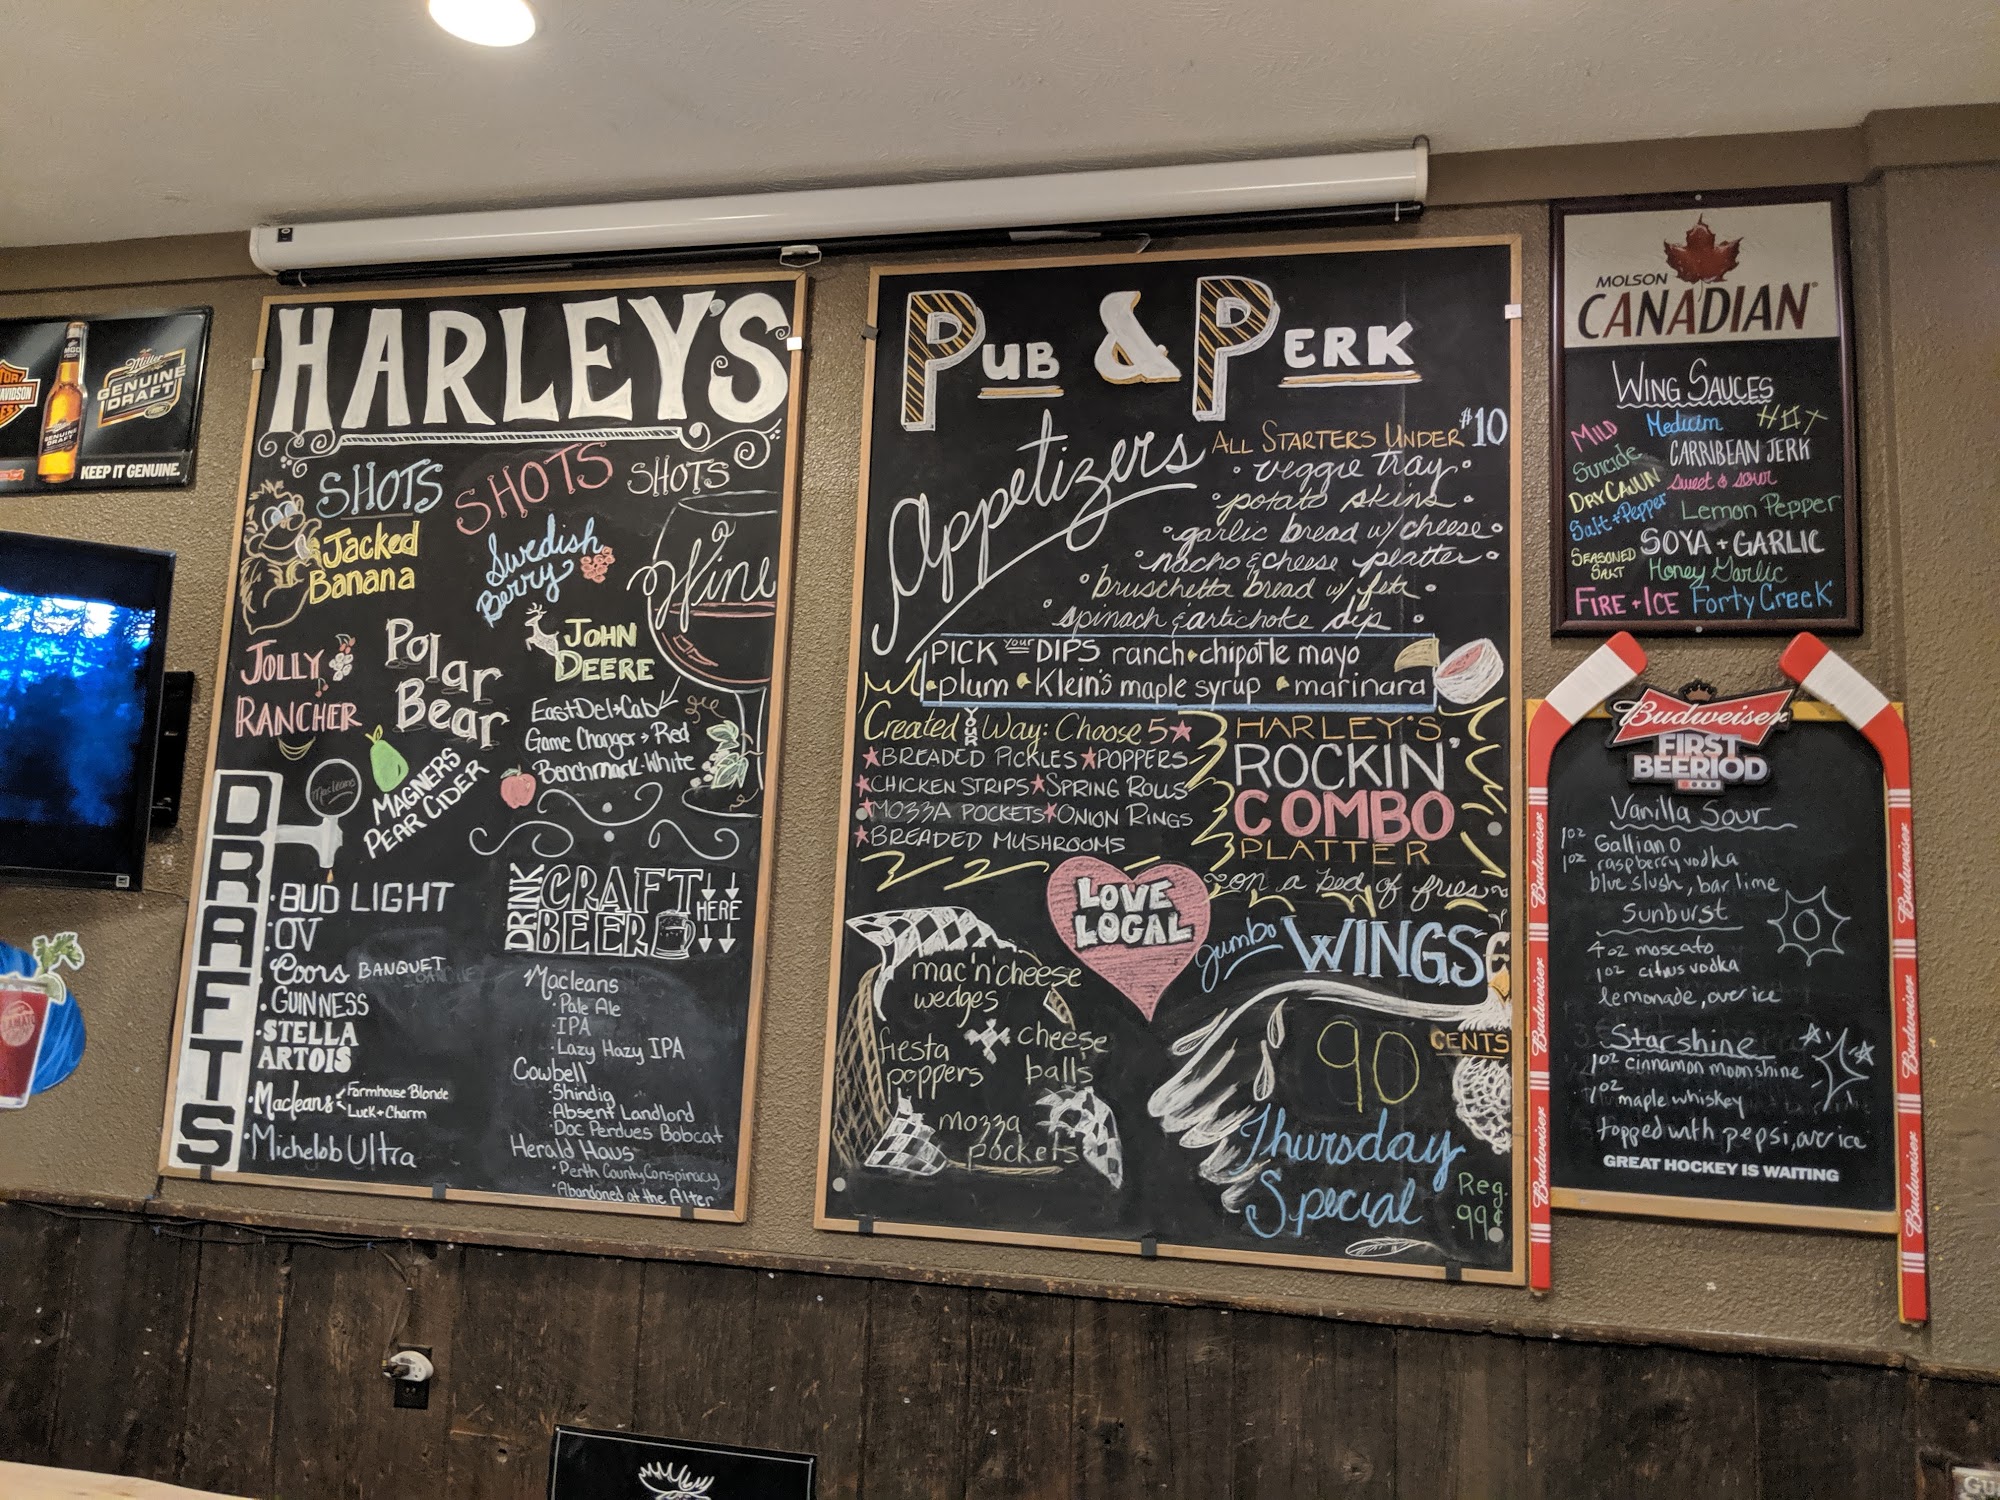 TOR
AVIDSON
ES
MGD
Miller
GENUINE
DRAFT
GENUINE
DRAFT
KEEP IT GENUINE.
HARLEY'S
SHOTS SHOTS SHOTS
Jacked
Banana
Swedish
Berry
a
Wine
JOLLY
RANCHER
Polar
Bear
JOHN
DEERE
East Del+Cab
Game Changer → Red
Benchmark-White
Macleans
MAGNERS
PEAR CIDER
DRAFTS
·BUD LIGHT
·OV
·Coors BANQUET
·GUINNESS
·STELLA
ARTOIS
·Macleans Farmhouse Blonde
Luck + Charm
·Michelob Ultra
DRINK
CRAFT
BEER
HERE
Macleans
·Pale Ale
·IPA
·Lazy Hazy IPA
Cowbell
·Shindig
·Absent Landlord
·Doc Perdues Bobcat
Herald Haus
·Perth County Conspiracy
·Abandoned at the Alter
PUB & PERK
Appetizers
ALL STARTERS UNDER $10
·veggie tray·
·potato skins·
·garlic bread w/ cheese·
·nacho & cheese platter·
·bruschetta bread w/ feta·
·spinach & artichoke dip·
PICK your DIPS ranch·chipotle mayo
·plum ·Klein's maple syrup ·marinara
Created YOUR Way: Choose 5★
★BREADED PICKLES ★POPPERS
★CHICKEN STRIPS★SPRING ROLLS
★MOZZA POCKETS★ONION RINGS
★BREADED MUSHROOMS
HARLEY'S
ROCKIN'
COMBO
PLATTER
~on a bed of fries~
LOVE
LOCAL
mac'n'cheese
wedges
fiesta
poppers
cheese
balls
mozza
pockets
Jumbo WINGS
90 CENTS
Thursday
Special
Reg.
.99¢
MOLSON
CANADIAN
WING SAUCES
MILD
Medium
HOT
Suicide
CARRIBEAN JERK
DRY CAJUN
sweet & sour
Salt + Pepper
Lemon Pepper
SEASONED
SALT
SOYA + GARLIC
Honey Garlic
FIRE + ICE
Forty Creek
Budweiser
FIRST
BEERIOD
Vanilla Sour
1oz Galliano
1oz raspberry vodka
blue slush, bar lime
Sunburst
4oz moscato
1oz citrus vodka
lemonade, over ice
Starshine
1oz cinnamon moonshine
1oz maple whiskey
topped with pepsi, over ice
GREAT HOCKEY IS WAITING
Budweiser
Budweiser
Budweiser
Budweiser
Budweiser
Budweiser